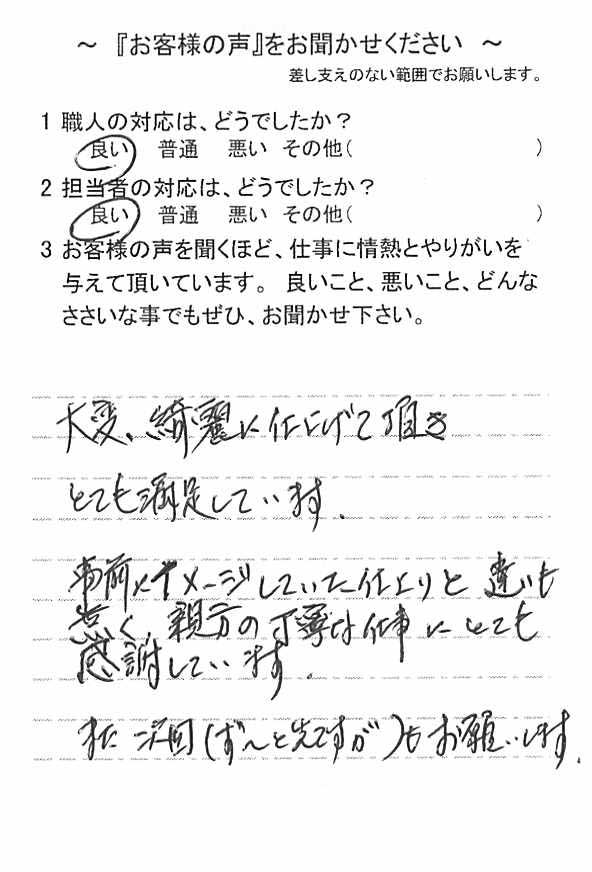 ～ 『お客様の声』をお聞かせください ～
差し支えのない範囲でお願いします。
1 職人の対応は、どうでしたか？
良い 普通 悪い その他( )
2 担当者の対応は、どうでしたか？
良い 普通 悪い その他( )
3 お客様の声を聞くほど、仕事に情熱とやりがいを
与えて頂いています。 良いこと、悪いこと、どんな
ささいな事でもぜひ、お聞かせ下さい。
大変、綺麗に仕上げて頂き
とても満足しています.
事前にイメージしていた仕上りと違いも
無く、親方の丁寧な仕事にとても
感謝しています.
また次回(ず〜と先ですが)もお願いします.